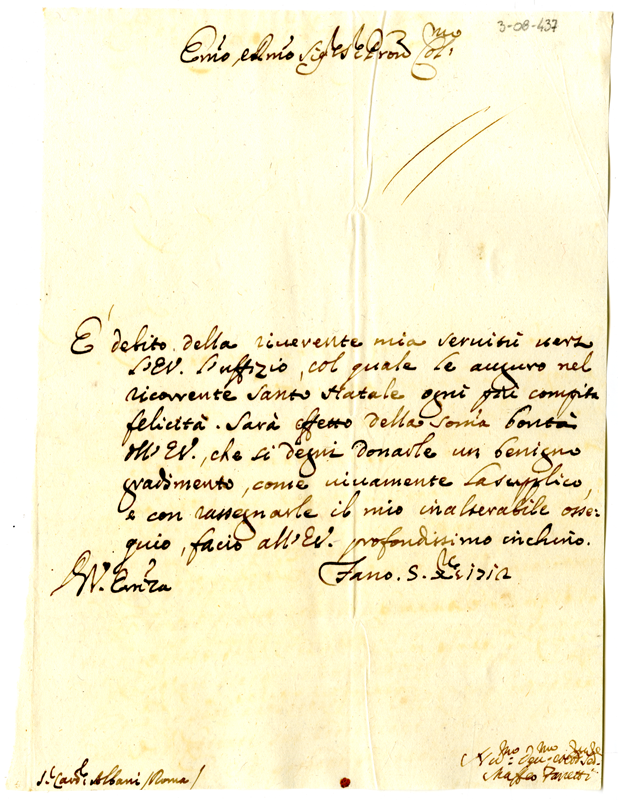 3-08-437
Emo, e Rmo Sig.re Sig.re e Pron Col.mo
È debito della riverente mia servitù verso
l'EV. l'uffizio, col quale le auguro nel
ricorrente Santo Natale ogni più compita
felicità. Sarà effetto della soma bontà
dell'EV., che si degni donarle un benigno
gradimento, come vivamente la supplico,
e con rassegnarle il mio inalterabile osse-
quio, facio all'EV. profondissimo inchino.
Fano. 5. Xbre 1712
V. Emza
S.r Card.l Albani /Roma/
Maffeo